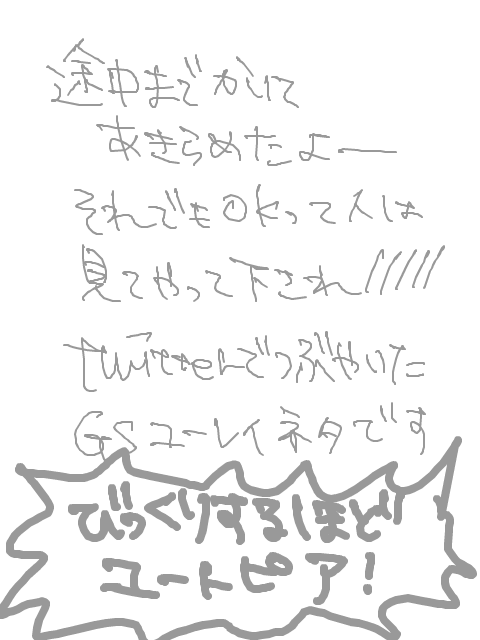 途中までかいて
あきらめたよー
それでもOKって人は
見てやって下され/////
twitterでつぶやいた
GSユーレイネタです
びっくりするほど
ユートピア!